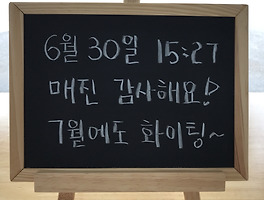 6월 30일 15:27
매진 감사해요!
7월에도 화이팅~